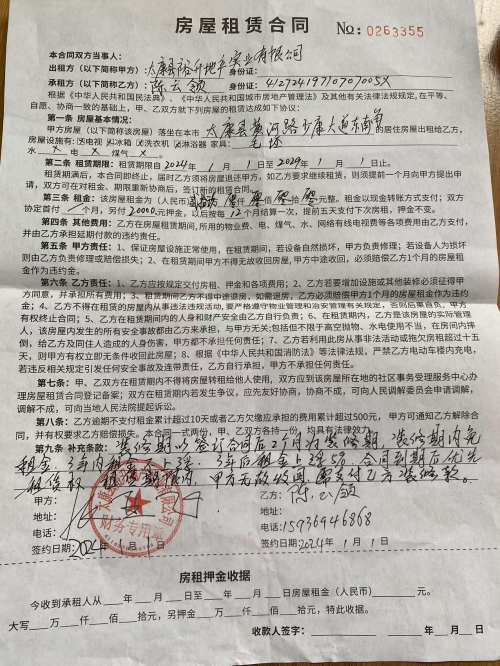 房屋租赁合同 No: 0263355
本合同双方当事人：
出租方（以下简称甲方）：太康县裕升地平实业有限公司 身份证：
承租方（以下简称乙方）：陈云领 身份证：
根据《中华人民共和国民法典》、《中华人民共和国城市房地产管理法》及其有关法律法规规定，在平等、
自愿、协商一致的基础上，甲、乙双方就下列房屋的租赁达成如下协议：
第一条 房屋基本情况：
甲方房屋（以下简称该房屋）落坐在本市 太康县黄河路少康大道东南角 的居住房屋出租给乙方，
房屋设施有：①电视 ②冰箱 ③洗衣机 ④淋浴器 家具：毛坯
水 电 煤气 。
第二条 租赁期限：租赁期限自2024年1月1日至2029年1月1日止。
租赁期届满后，本合同即终止，届时乙方须将房屋退还甲方，如乙方要求继续租赁，则须提前一个月向甲方提出申
请，双方可在对租金、期限重新协商后，签订新的租赁合同。
第三条 租金：该房屋租金为（人民币） 元整。租金以现金转账方式支付；双方
协定首付 个月，另付20000元押金，以后按每12个月结算一次，提前五天支付下次房租，押金不变。
第四条 其他费用：乙方在房屋租赁期间，所用的物业费、电、煤气、水、网络有线电视费等各项费用由乙方支付，
并由乙方承担延期付款的违约责任。
第五条 甲方责任：1、保证房屋设施正常使用，在租赁期间，若设备自然损坏，甲方负责修理；若设备人为损坏
则由乙方负责修理或赔偿损失；2、在租赁期间，甲方不得无故收回房屋，甲方中途收回，必须赔偿乙方1个月的房屋租
金作为违约金。
第六条 乙方责任：1、乙方应按规定交付房租、押金和各项费用；2、乙方若要增加设施或其他装修必须征得甲
方同意，并承担所有费用；3、租赁期间乙方不得中途退房，如需退房，乙方必须赔偿甲方1个月的房屋租金作为违约
金；4、乙方不得在租赁的房屋内从事违法违规活动，要严格遵守物业管理和治安管理有关规定，否则后果自负，甲方
有权终止合同；5、乙方在租赁期间内的人身和财产安全由乙方自行负责；6、在租赁期内，乙方是该房屋的实际管理
人，该房屋内发生的所有安全事故都由乙方来承担，与甲方无关；包括但不限于高空抛物、水电使用不当，在房间内摔
倒，给乙方及同住人造成的人身伤害，甲方都不承担任何责任；7、乙方若利用此房从事非法活动或拖欠房租超过十五
天，则甲方有权立即无条件收回此房屋；8、根据《中华人民共和国消防法》等法律法规，严禁乙方电动车楼内充电，
若违反相关规定引发任何安全事故及连带责任，乙方自行承担，甲方不承担任何责任。
第七条：甲、乙双方在租赁期内不得将房屋转租给他人使用，双方应到该房屋所在地的社区事务受理服务中心办
理房屋租赁合同登备案；在租赁期内双方若发生争议，应先友好协商，协商不成，可向人民调解委员会申请调解，
调解不成，可向当地人民法院提起诉讼。
第八条：乙方逾期不支付租金累计超过10天或者乙方欠缴应承担的费用累计超过500元，甲方可通知乙方解除合
同，并有权要求乙方赔偿损失。本合同一式两份，甲、乙双方各持一份，均具有法律效力。
第九条 补充条款：装修期以签订合同后2个月为装修期，装修期内免
租金，3年内租金不上浮，3年后租金上浮5%，合同到期后优先
租赁权，租赁期限内，甲方无故收回需支付乙方装修款。
甲方： 乙方：陈云领
地址： 地址：
电话： 电话：15936946868
签约日期：2024年1月1日 签约日期：2024年1月1日
财务专用章
房租押金收据
今收到承租人从___年___月___日至___年___月___日房屋租金（人民币）______元。
大写___万___仟___佰___拾元，另押金___万___仟___佰___拾元，特此收据。
收款人签字：________ ____年___月___日